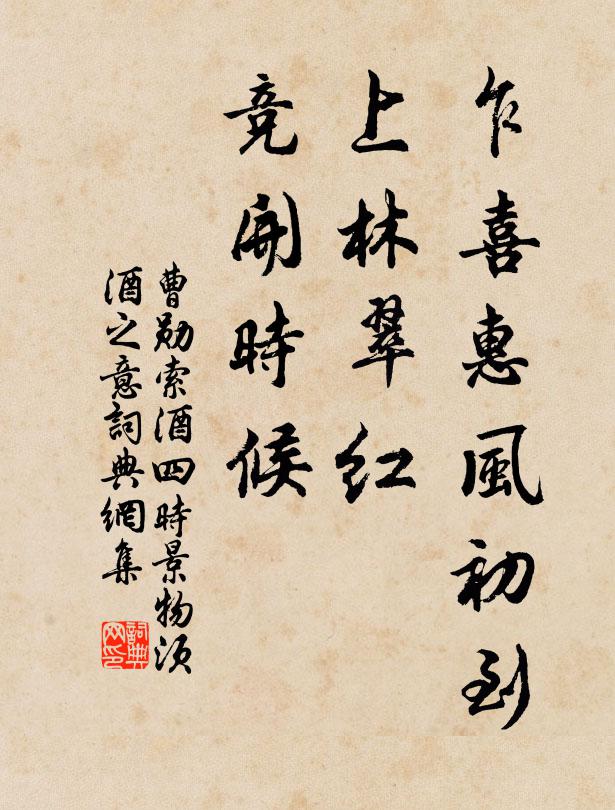 乍喜惠風初到
上林翠紅
競開時候
曹勛索酒四時景物須
酒之意詞典網集
詞典網印